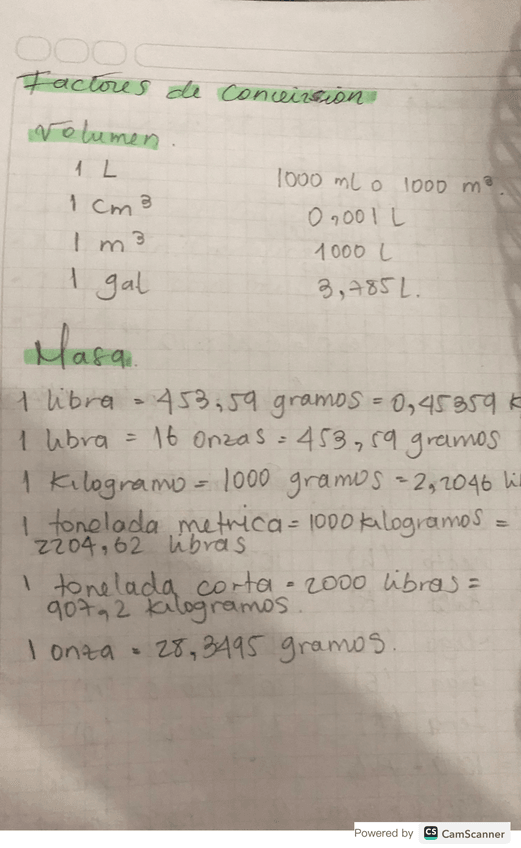 Factores de conveirsion
Volumen.
1 L 1000 mL o 1000 m³.
1 cm³ 0,001 L
1 m³ 1000 L
1 gal 3,785 L.
Masa.
1 libra = 453,59 gramos = 0,45359 K
1 libra = 16 onzas = 453,59 gramos
1 Kilogramo = 1000 gramos = 2,2046 li
1 tonelada metrica = 1000 kilogramos =
2204,62 libras
1 tonelada corta = 2000 libras =
907,2 kilogramos.
1 onza = 28,3495 gramos.
Powered by CS CamScanner